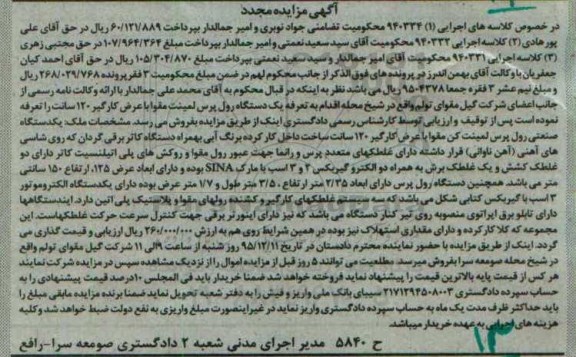 آگهی مزایده مجدد
در خصوص کلاسه های اجرایی (۱) ۹۴۰۳۳۴ محکومیت تضامنی جواد نوبری و امیر جمالدار بپرداخت ۶۰/۱۲۱/۸۸۹ ریال در حق آقای علی
پور هادی (۲) کلاسه اجرایی ۹۴۰۳۳۲ محکومیت آقای سید سعید نعمتی و امیر جمالدار بپرداخت مبلغ ۱۰۷/۹۶۴/۳۶۴ در حق مجتبی زهری
(۳) کلاسه اجرایی ۹۴۰۳۳۱ محکومیت آقای امیر جمالدار و سید سعید نعمتی بپرداخت مبلغ ۱۰۵/۳۰۴/۸۷۰ ریال در حق آقای احمد کیان
جعفریان با وکالت آقای بهمن اندرز در پرونده های فوق الذکر از جانب محکوم لهم در ضمن مبلغ محکومیت ۳ فقره پرونده ۲۶۸/۰۲۹/۷۶۸ ریال
و مبلغ نیم عشر ۳ فقره جمعا ۹۵۰۴۳۷۸ ریال می باشد نظر به اینکه در قبال محکوم به آقای محمد علی جمالدار با ارائه وکالت نامه رسمی از
جانب اعضای شرکت گیل مقوای تولم واقع در شیخ محله اقدام به تعرفه یک دستگاه رول پرس لمینت مقوا با عرض کارگیر ۱۲۰ سانت را تعرفه
نموده است پس از توقیف و ارزیابی توسط کارشناس رسمی دادگستری اینک از طریق مزایده بفروش می رسد. مشخصات ملک: یکدستگاه
صنعتی رول پرس لمینت کن مقوا با عرض کارگیر ۱۲۰ سانت ساخت داخل کار کرده برنگ آبی بهمراه دستگاه کاتر برقی گردان که روی شاسی
های آهنی (آهن ناودانی) قرار داشته دارای غلطکهای متعدد پرس و راهنما جهت عبور رول مقوا و روکش های پلی اتیلنسیت کاتر دارای دو
غلطک کشش و یک غلطک برش به همراه دو الکترو گیربکس ۲ و ۳ اسب با مارک SINA بوده و دارای ابعاد عرض ۱۲۵، ارتفاع ۱۵۰ سانتی
متر می باشد. همچنین دستگاه رول پرس دارای ابعاد ۲/۳۵ متر ارتفاع ۳/۵۰ متر طول و ۱/۷ متر عرض بوده دارای یکدستگاه الکتروموتور
۳ اسب با گیربکس کتابی شکل می باشد که سیستم غلطکهای کارگیر و کشنده رولهای مقوا و پلاستیک پلی اتین دارد. ایندستگاهها
دارای تابلو برق اپراتوری منصوبه روی تیر کنار دستگاه می باشد که نیز دارای اینورتر برقی جهت کنترل سرعت حرکت غلطکهاست. این
مجموعه که کلا کار کرده و دارای مقداری استهلاک نیز بوده در همین شرایط روی هم به ارزش ۲۶۰/۰۰۰/۰۰۰ ریال ارزیابی و قیمت گذاری می
گردد. اینک از طریق مزایده با حضور نماینده محترم دادستان در تاریخ ۹۵/۱۲/۱۱ روز شنبه از ساعت ۹ الی ۱۱ شرکت گیل مقوای تولم واقع
در شیخ محله صومعه سرا بفروش میرسد. مطلعیت می توانند ۵ روز قبل از مزایده اموال را از نزدیک مشاهده سپس در مزایده شرکت نمایند
هر کس از قیمت پایه بالاترین قیمت را پیشنهاد نماید فروخته خواهد شد ضمنا خریدار باید فی المجلس ۱۰ درصد قیمت پیشنهادی را به
حساب سپرده دادگستری ۳۱۷۱۲۹۴۵۰۸۰۰۳ سیبای بانک ملی واریز و فیش را به دفتر شعبه تحویل نماید ضمنا برنده مزایده مابقی مبلغ را
باید حداکثر ظرف مدت یک ماه به حساب سپرده دادگستری واریز نماید در غیر اینصورت مبلغ واریزی به نفع دولت ضبط خواهد شد و کلیه
هزینه های اجرایی به عهده خریدار میباشد.
ح ۵۸۴۰ مدیر اجرای مدنی شعبه ۲ دادگستری صومعه سرا-رافع